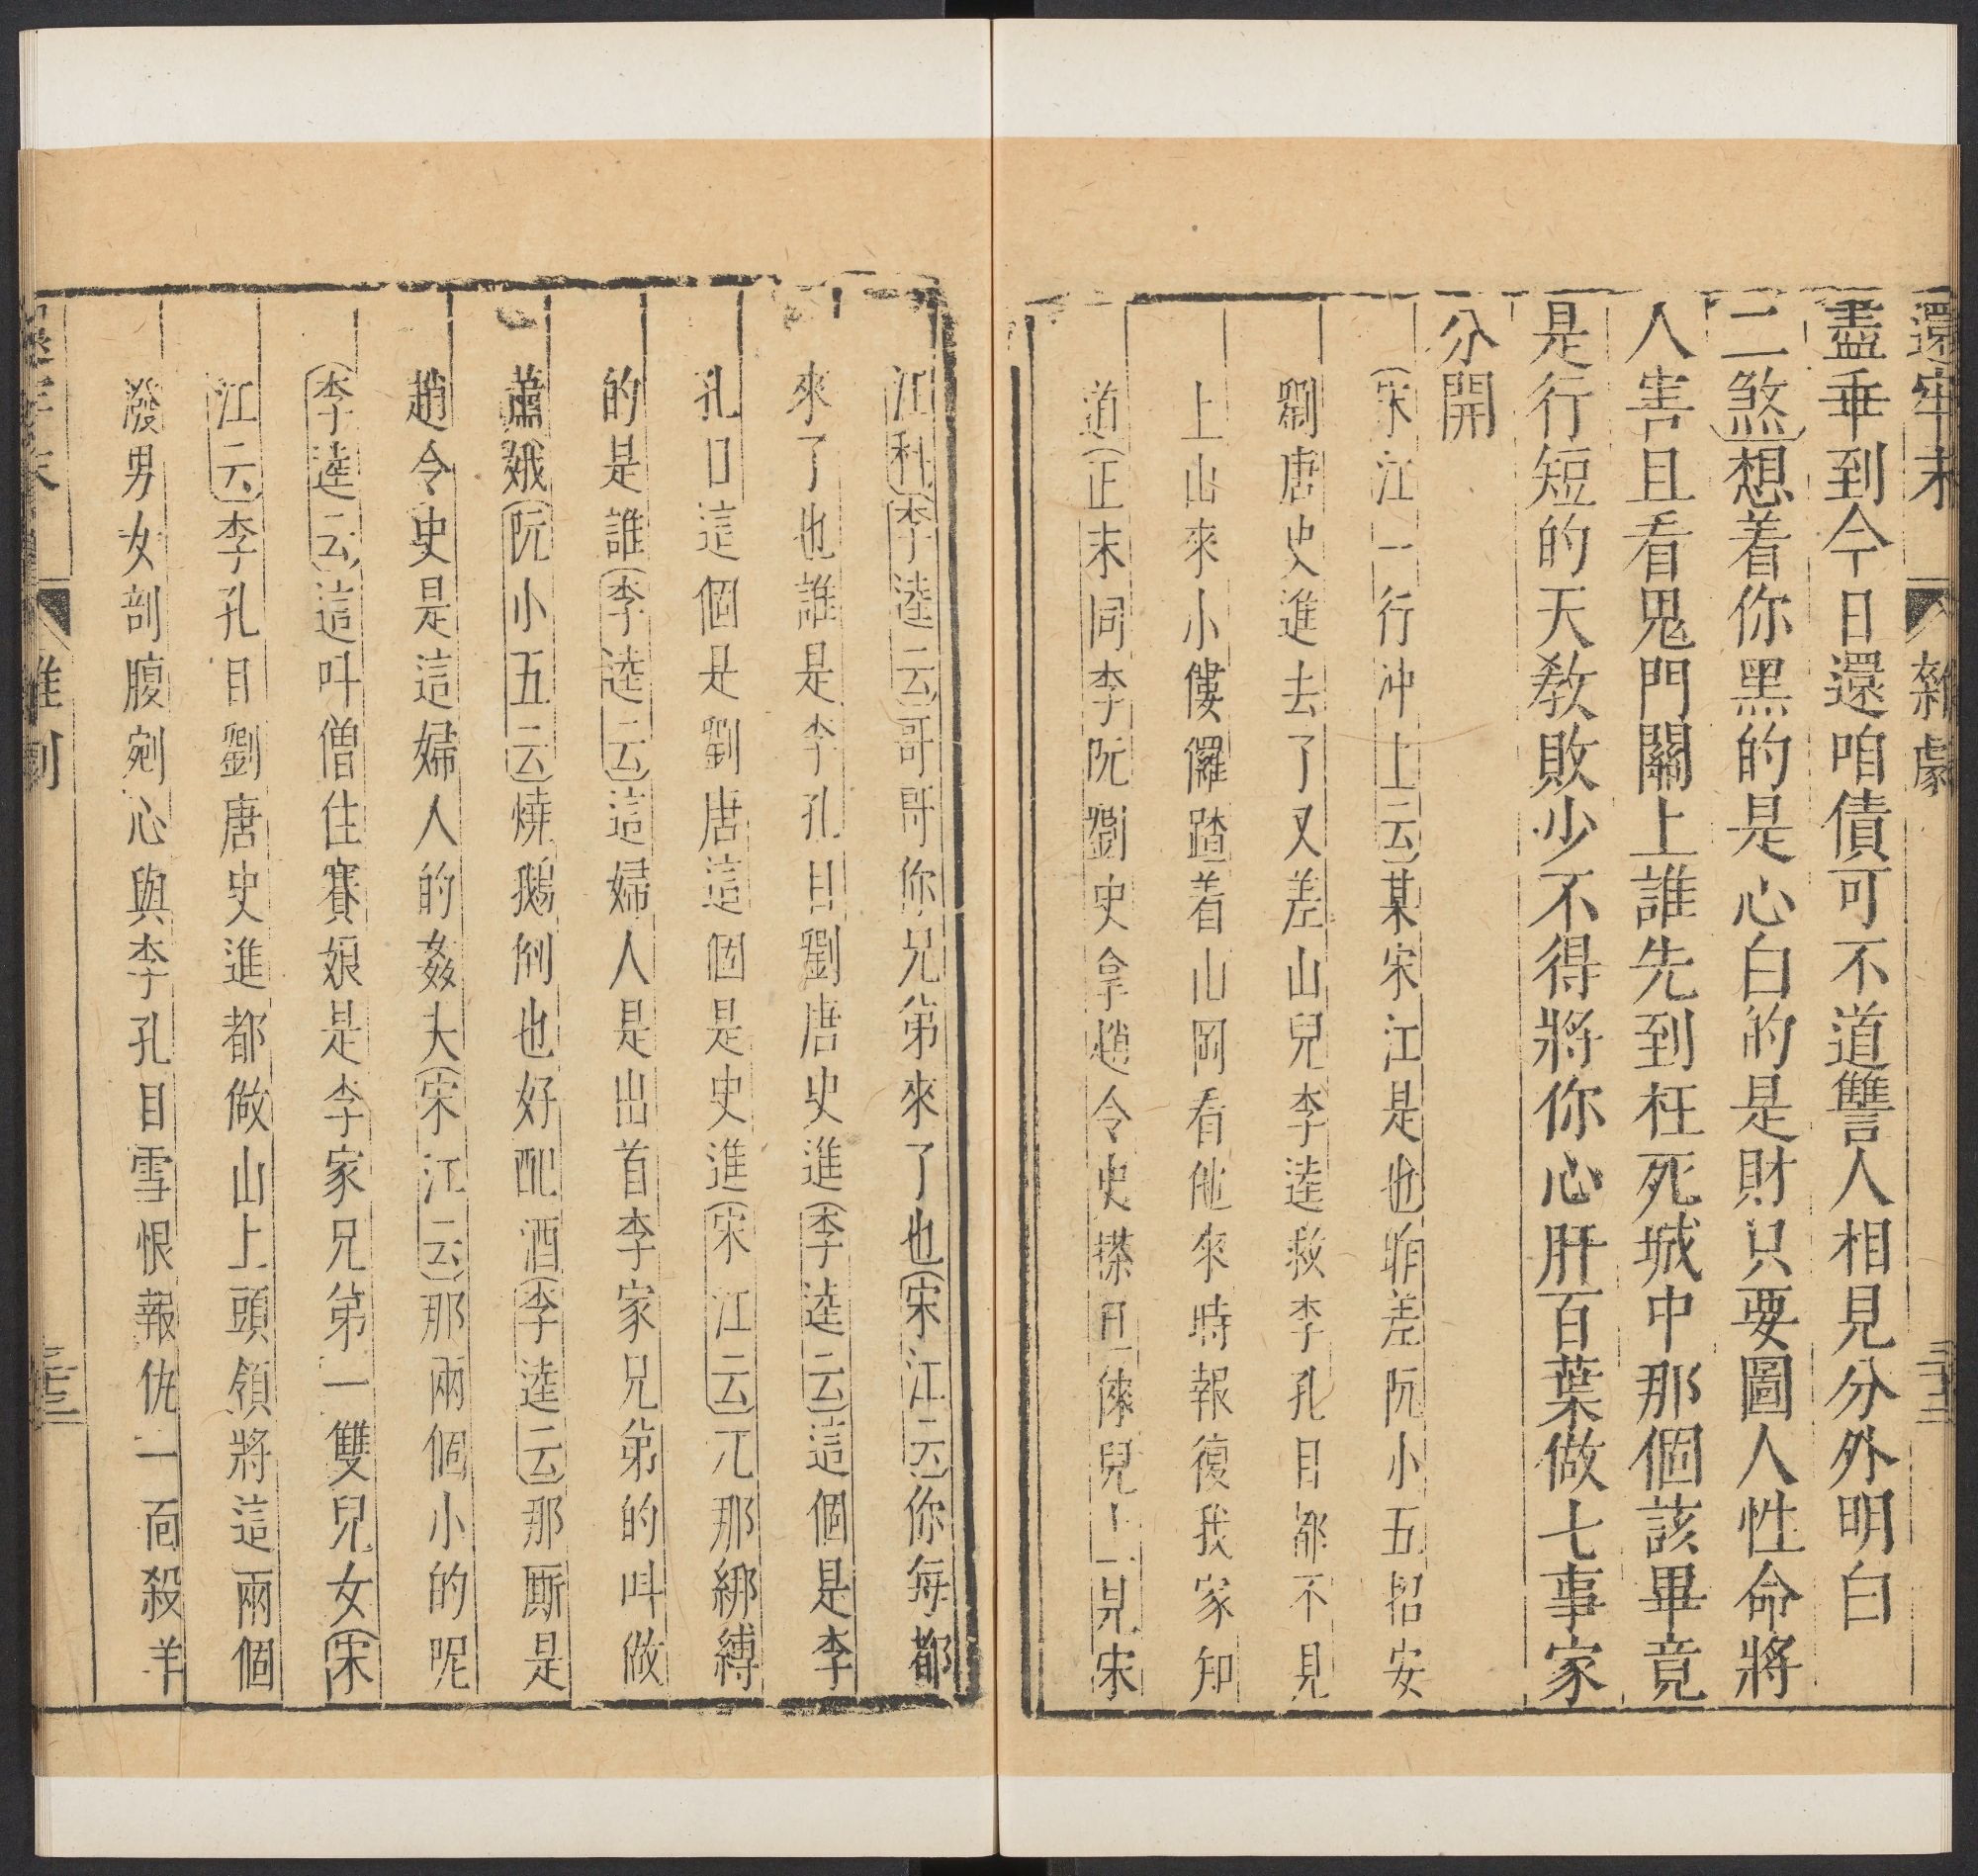 還牢末 雜劇
盡垂到今日還咱債可不道讐人相見分外明白
二煞想着你黑的是心白的是財只要圖人性命將
人害且看鬼門關上誰先到枉死城中那個該畢竟
是行短的天敎敗少不得將你心肝百葉做七事家
分開
宋江一行冲上云某宋江是也昨差阮小五招安
劉唐史進去了又差山兒李逵救李孔目都不見
上山來小僂儸蹅着山岡看他來時報復我家知
道正末同李阮劉史拿趙令史搽旦倈兒上見宋
江科李逵云哥哥你兄弟來了也宋江云你每都
來了也誰是李孔目劉唐史進李逵云這個是李
孔目這個是劉唐這個是史進宋江云兀那綁縛
的是誰李逵云這婦人是出首李家兄弟的呌做
蕭娥阮小五云燒鵝倒也好配酒李逵云那厮是
趙令史是這婦人的姦夫宋江云那兩個小的呢
李逵云這呌僧住賽娘是李家兄弟一雙兒女宋
江云李孔目劉唐史進都做山上頭領將這兩個
潑男女剖腹剜心與李孔目雪恨報仇一面殺羊
還牢末 雜劇